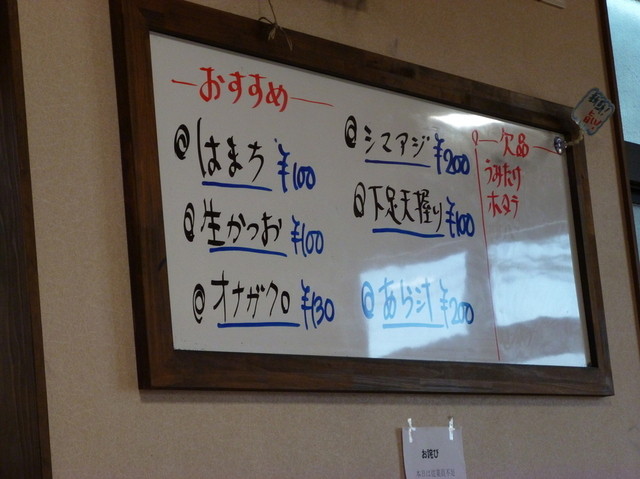 ーおすすめー
@はまち ¥100
@生かつお ¥100
@オナガグロ ¥130
@シマアジ ¥200
@下足天握り ¥100
@あら汁 ¥200
欠品
うみたけ
ホタテ
お詫び